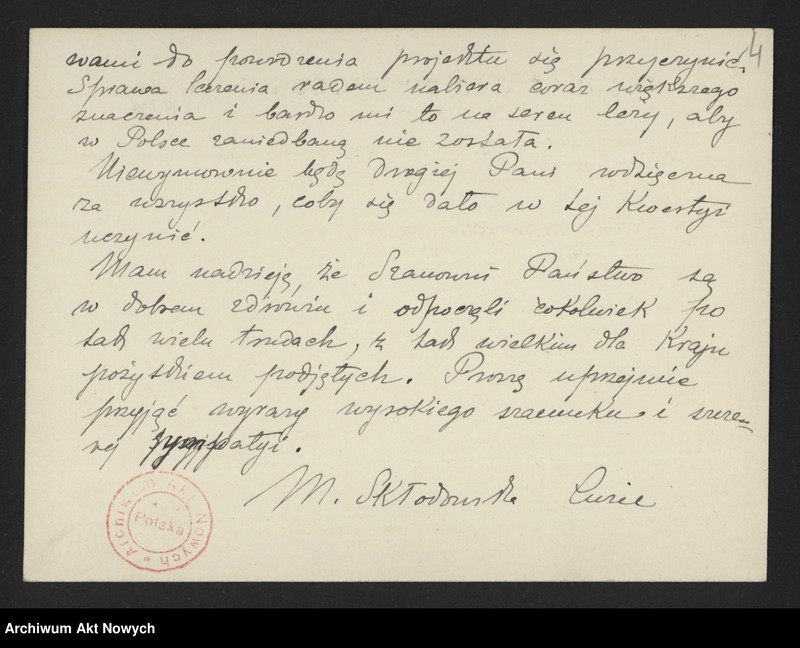 4
wami do powodzenia projektu się przyczynić.
Sprawa leczenia radem nabiera coraz większego
znaczenia i bardzo mi to na sercu leży, aby
w Polsce zaniedbaną nie została.
Niewymownie będę Drogiej Pani wdzięczna
za wszystko, coby się dało w tej Kwestyi
uczynić.
Mam nadzieję, że Szanowni Państwo są
w dobrem zdrowiu i odpoczęli cokolwiek po
tak wielu trudach, z tak wielkim dla Kraju
pożytkiem podjętych. Proszę uprzejmie
przyjąć wyrazy wysokiego szacunku i szcze-
rej sympatyi.
M. Skłodowska Curie
Archiwum Akt Nowych
Polska
Archiwum Akt Nowych